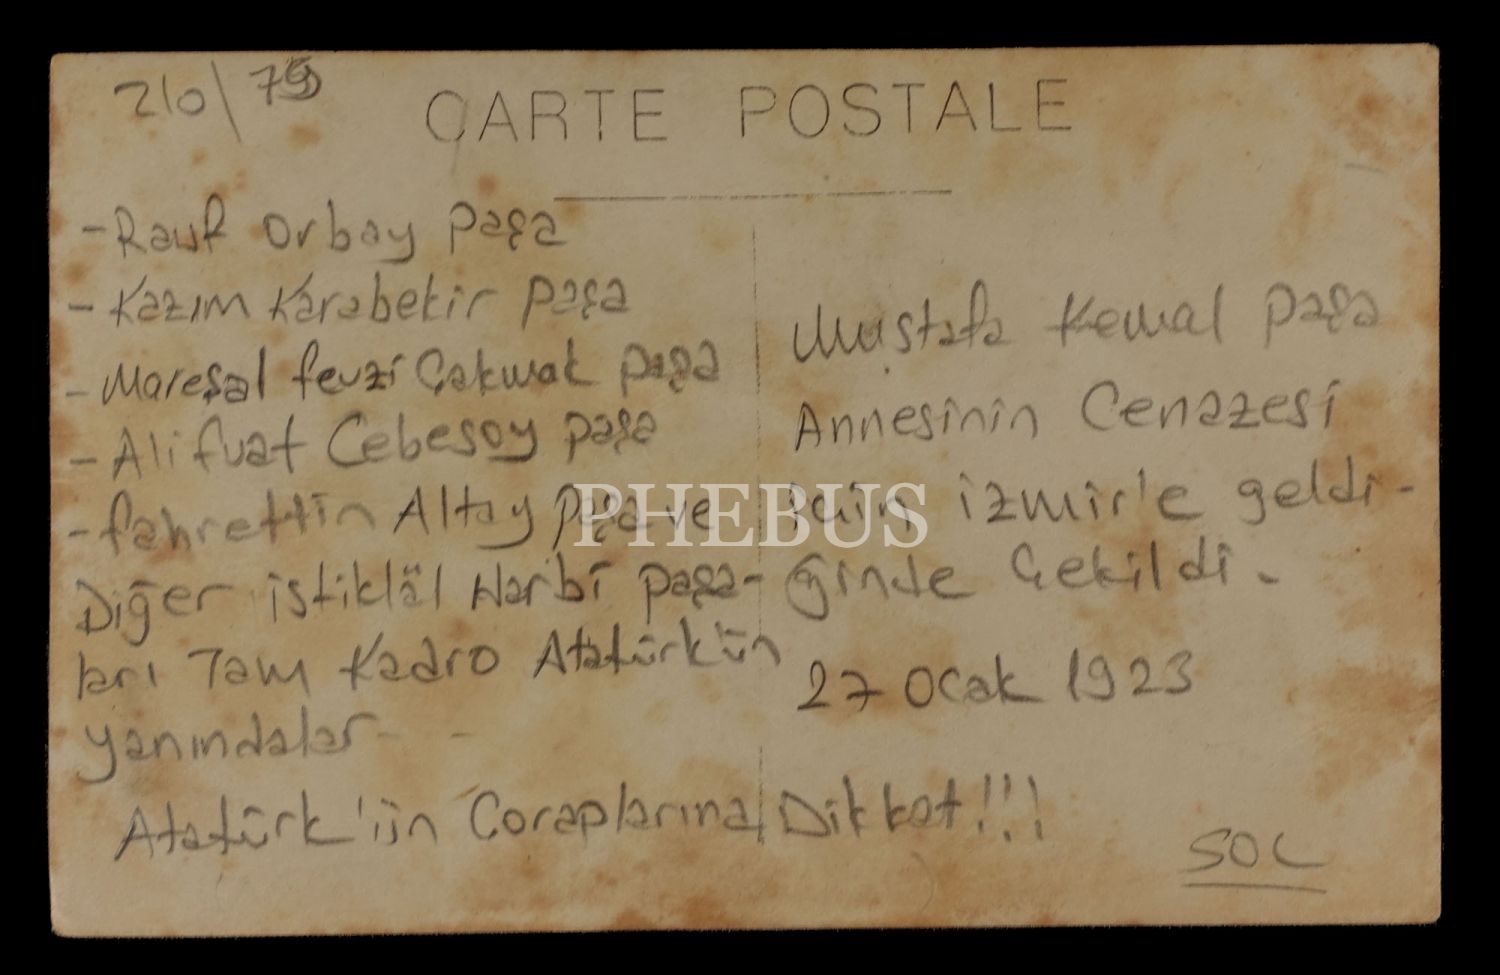 210/79
CARTE POSTALE
- Rauf Orbay Paşa
- Kazım Karabekir Paşa
- Mareşal fevzi Çakmak paşa
- Ali fuat Cebesoy paşa
- fahrettin Altay paşa ve
Diğer istiklâl Harbi paşa-
ları Tam Kadro Atatürk'ün
yanındalar - -
Mustafa Kemal Paşa
Annesinin Cenazesi
için izmir'e geldi-
ğinde Çekildi.
27 Ocak 1923
Atatürk'ün Çoraplarına Dikkat!!!
SOL
PHEBUS